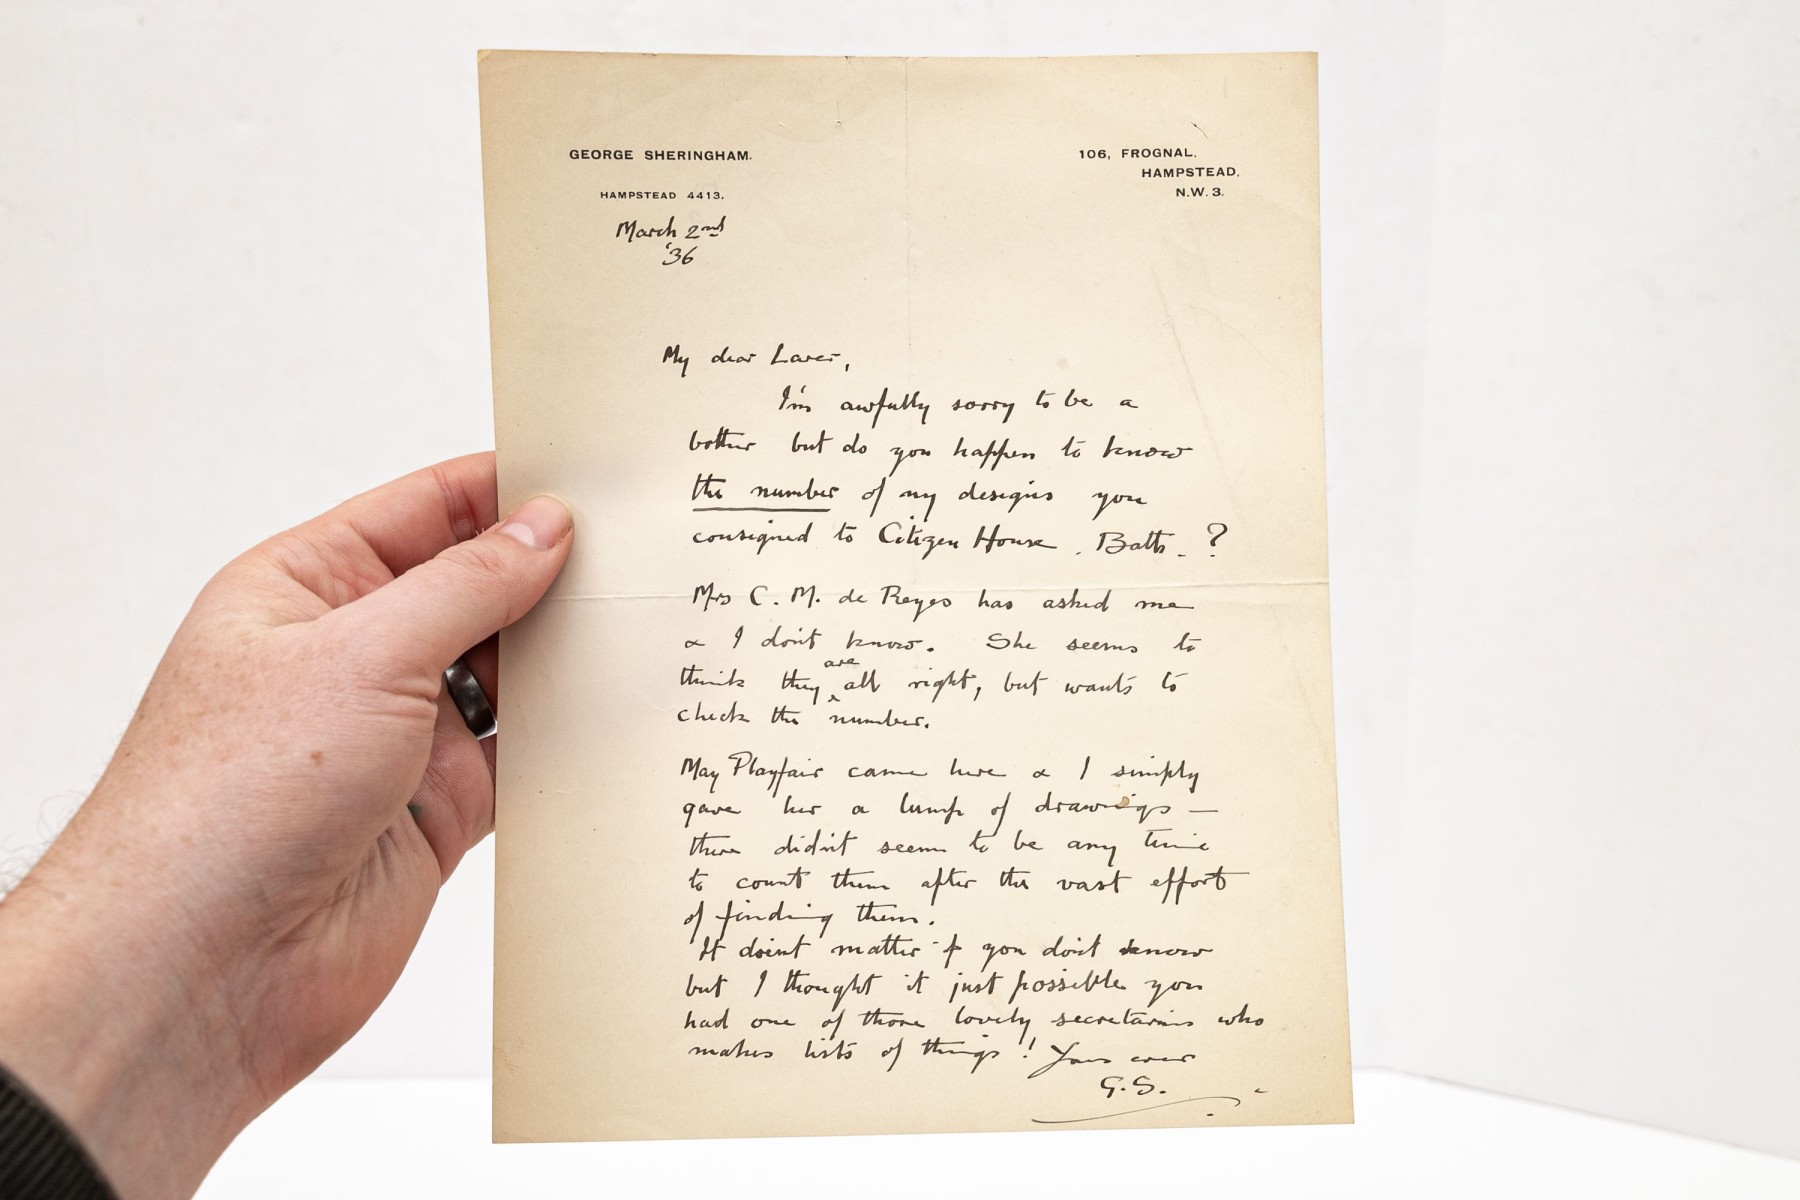 GEORGE SHERINGHAM.
HAMPSTEAD 4413.
106, FROGNAL,
HAMPSTEAD,
N.W. 3.
March 2nd
'36
My dear Laver,
I'm awfully sorry to be a
bother but do you happen to know
the number of my designs you
consigned to Citizen House, Bath. ?
Mrs C. M. de Reyes has asked me
& I don't know. She seems to
think they are all right, but wants to
check the number.
May Playfair came here & I simply
gave her a lump of drawings —
there didn't seem to be any time
to count them after the vast effort
of finding them.
It doesn't matter if you don't know
but I thought it just possible you
had one of those lovely secretaries who
makes lists of things! Yours ever
G.S.